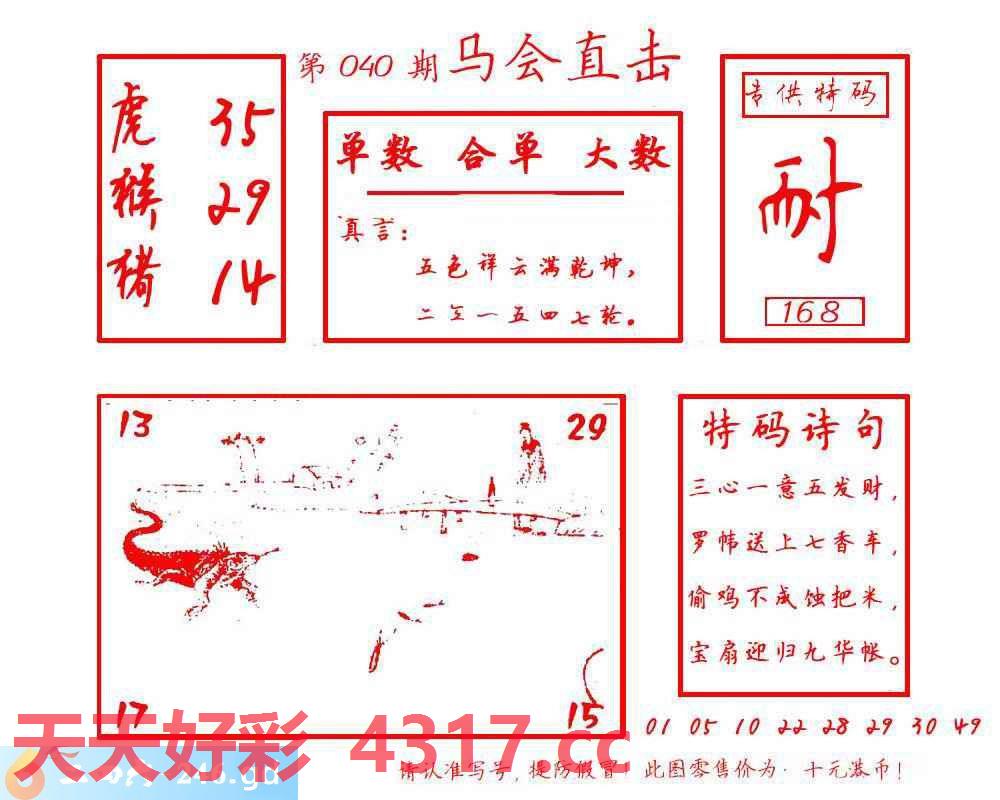 第 040 期 马会直击
虎 35
猴 29
猪 14
单数 合单 大数
真言:
五色祥云满乾坤,
二三一五四七轮。
专供特码
耐
168
13
29
17
15
特码诗句
三心一意五发财,
罗帏送上七香车,
偷鸡不成蚀把米,
宝扇迎归九华帐。
01 05 10 22 28 29 30 49
天天好彩 4317.cc
246.gd
请认准写号,提防假冒!此图零售价为·十元港币!